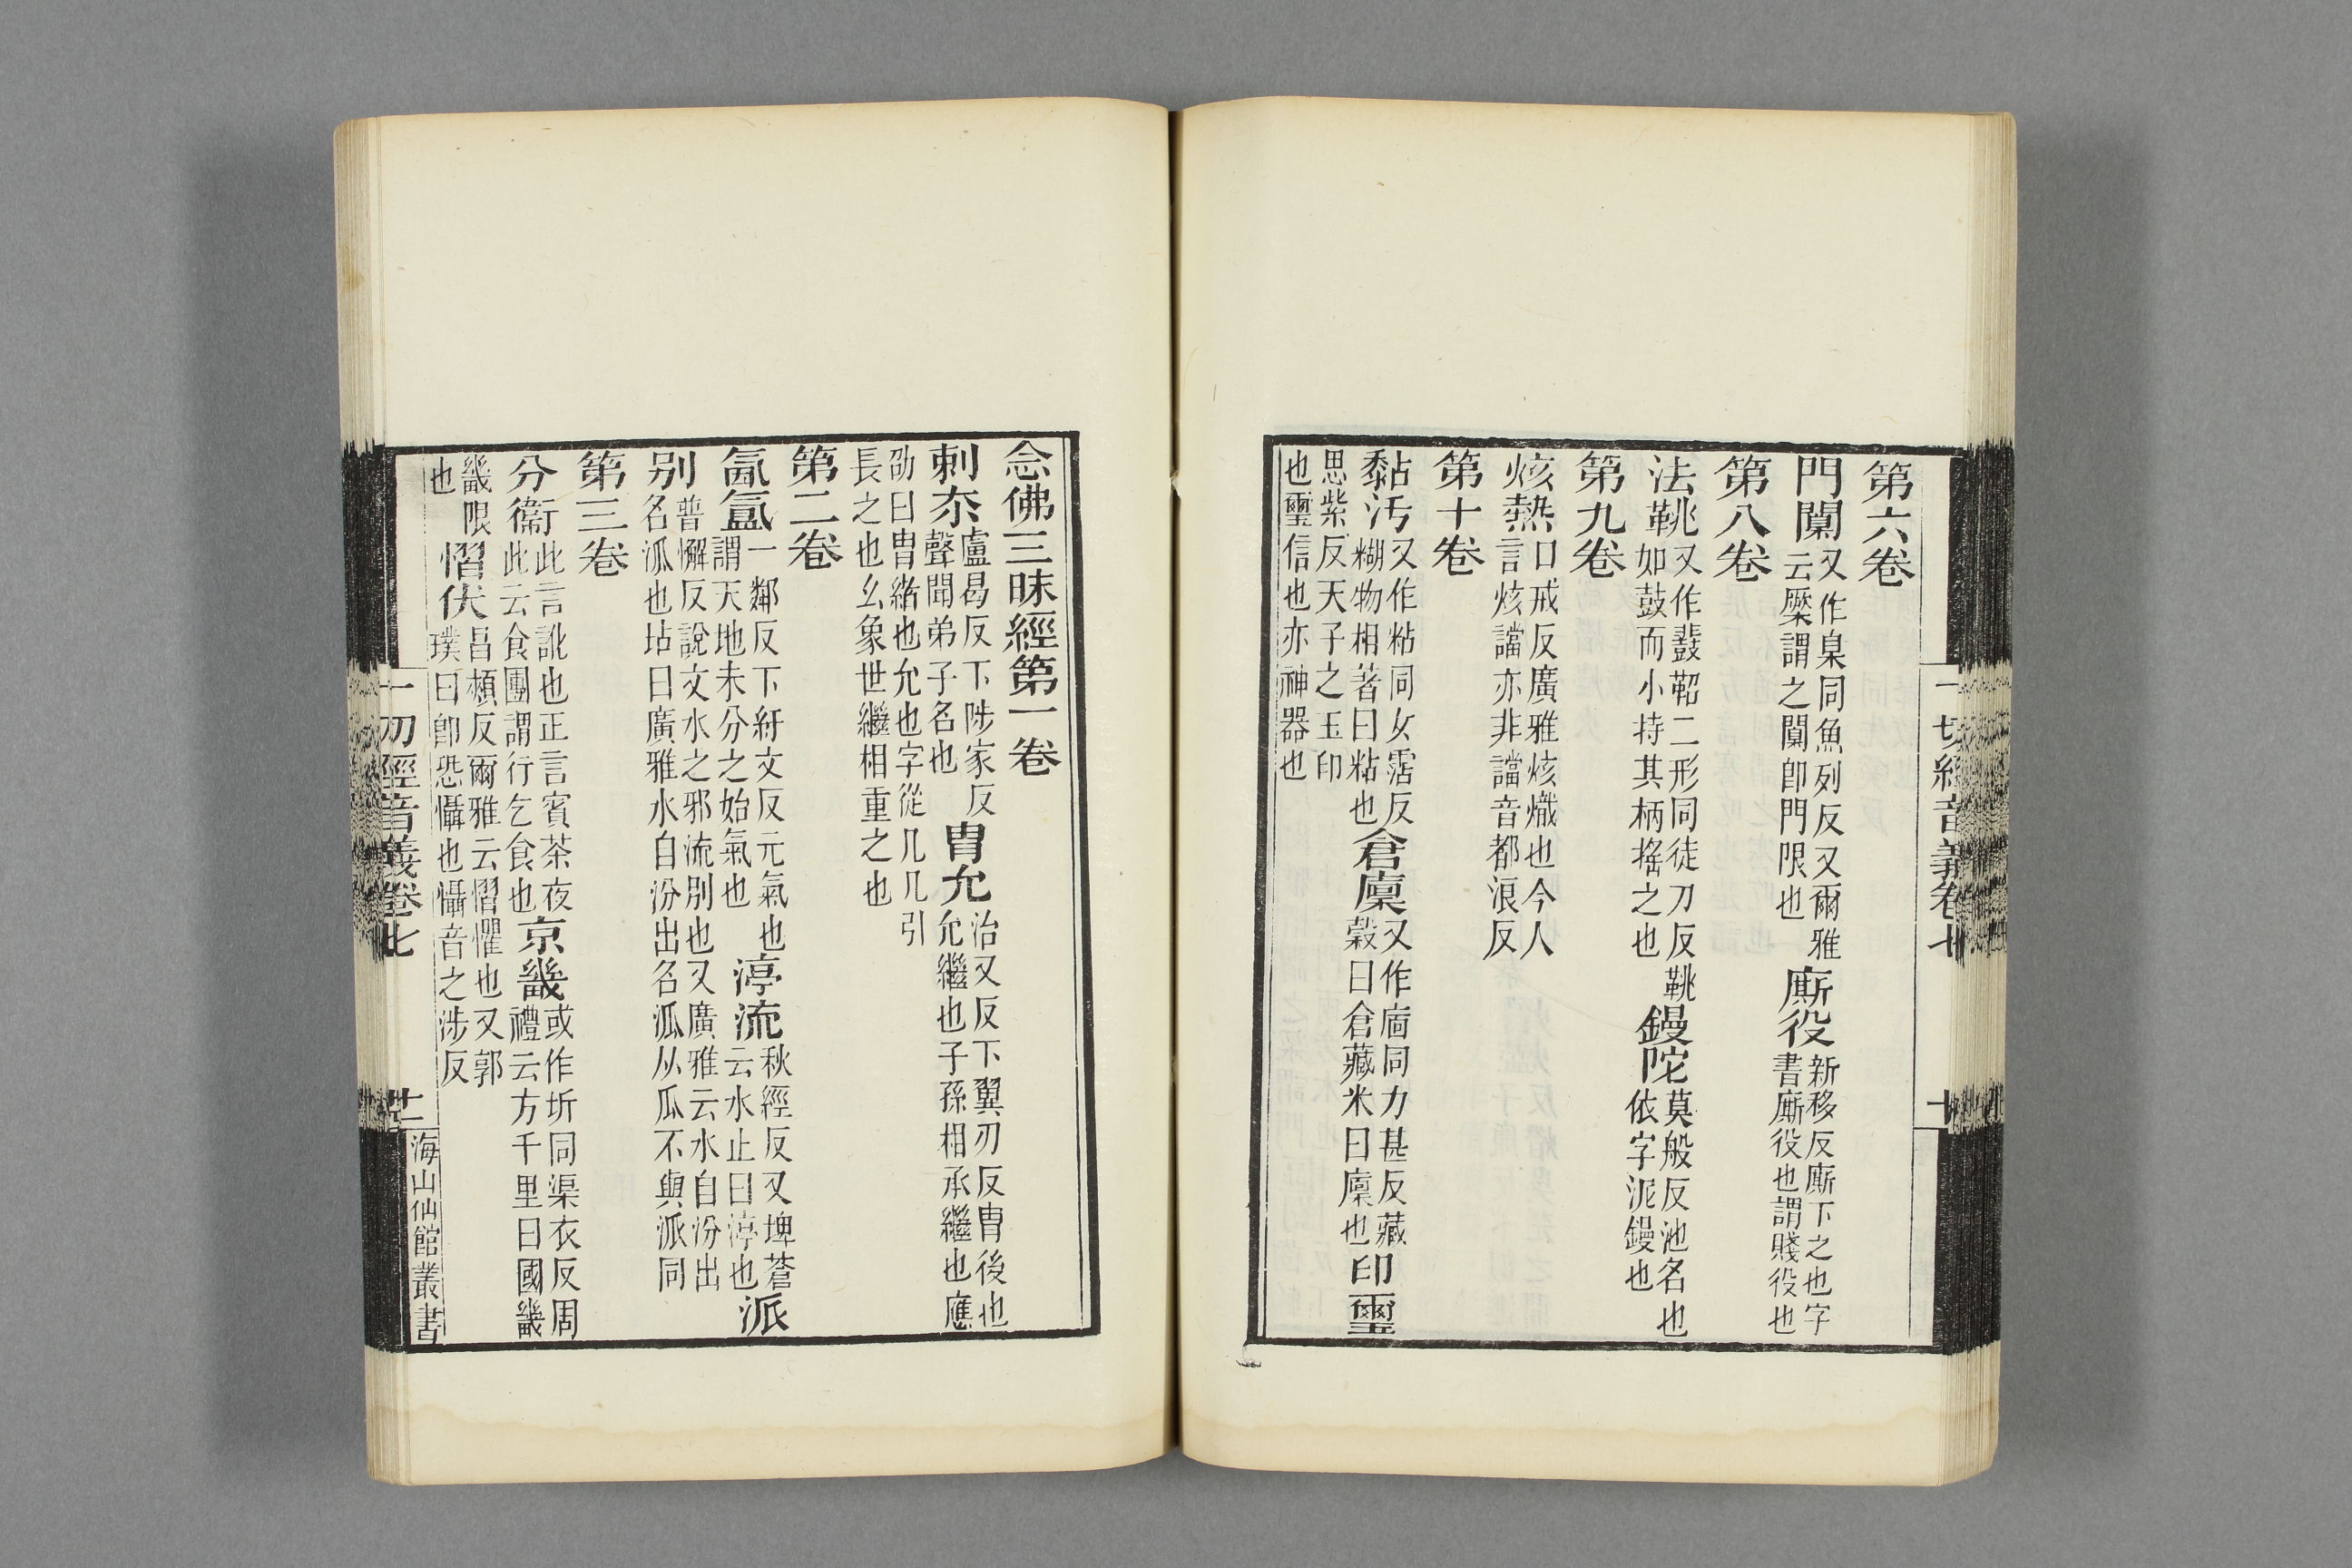 一切經音義卷七
第六卷
門闑又作臬同魚列反又爾雅云橜謂之闑卽門限也廝役新移反廝下之也字書廝役也謂賤役也
第八卷
法鞉又作鼗鞀二形同徒刀反鞉如鼓而小持其柄搖之也鏝陀莫般反池名也依字泥鏝也
第九卷
烗熱口戒反廣雅烗熾也今人言烗讜亦非讜音都浪反
第十卷
黏汚又作粘同女霑反糊物相著曰粘也倉廩又作㐭同力甚反藏穀曰倉藏米曰廩也印璽
思紫反天子之玉印也璽信也亦神器也
念佛三昧經第一卷
刺奈盧曷反下陟家反聲聞弟子名也胄允治又反下翼刃反胄後也允繼也子孫相承繼也應
劭曰胄緒也允也字從几几引長之也幺象世繼相重之也
第二卷
氤氳一鄰反下紆文反元氣也謂天地未分之始氣也渟流秋經反又埤蒼云水止曰渟也派
別普懈反說文水之邪流別也又廣雅云水自汾出名泒也坫曰廣雅水自汾出名泒从瓜不與派同
第三卷
分衞此言訛也正言賓茶夜此云食團謂行乞食也京畿或作圻同渠衣反周禮云方千里曰國畿
畿限也慴伏昌頰反爾雅云慴懼也又郭璞曰卽恐懾也懾音之涉反
一切經音義卷七 廿一 海山仙館叢書